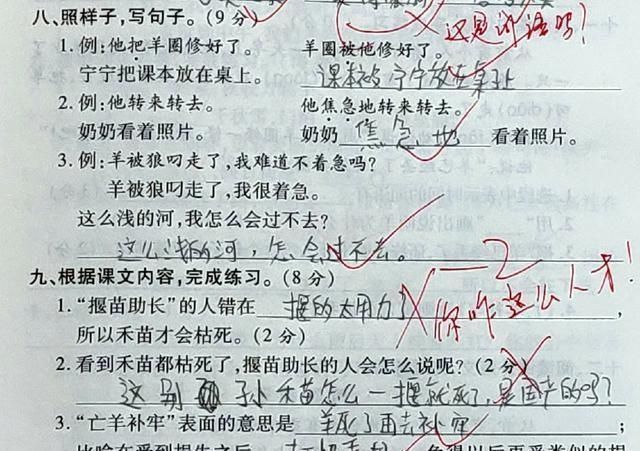 八、照样子,写句子。(9分)
这是对话吗?
1. 例:他把羊圈修好了。 羊圈被他修好了。
宁宁把课本放在桌上。 课本被宁宁放在桌上
2. 例:他转来转去。 他焦急地转来转去。
奶奶看着照片。 奶奶 焦急地 看着照片。
3. 例:羊被狼叼走了,我难道不着急吗?
羊被狼叼走了,我很着急。
这么浅的河,我怎么会过不去?
这么浅的河,怎会过不去。
-2
九、根据课文内容,完成练习。(8分)
你咋这么人才!
1. “揠苗助长”的人错在 揠的太用力了,
所以禾苗才会枯死。(2分)
2. 看到禾苗都枯死了,揠苗助长的人会怎么说呢?(2分)
这别 子禾苗怎么一揠就死了,是国产的吗?
3. “亡羊补牢”表面的意思是 羊死了再去补牢;